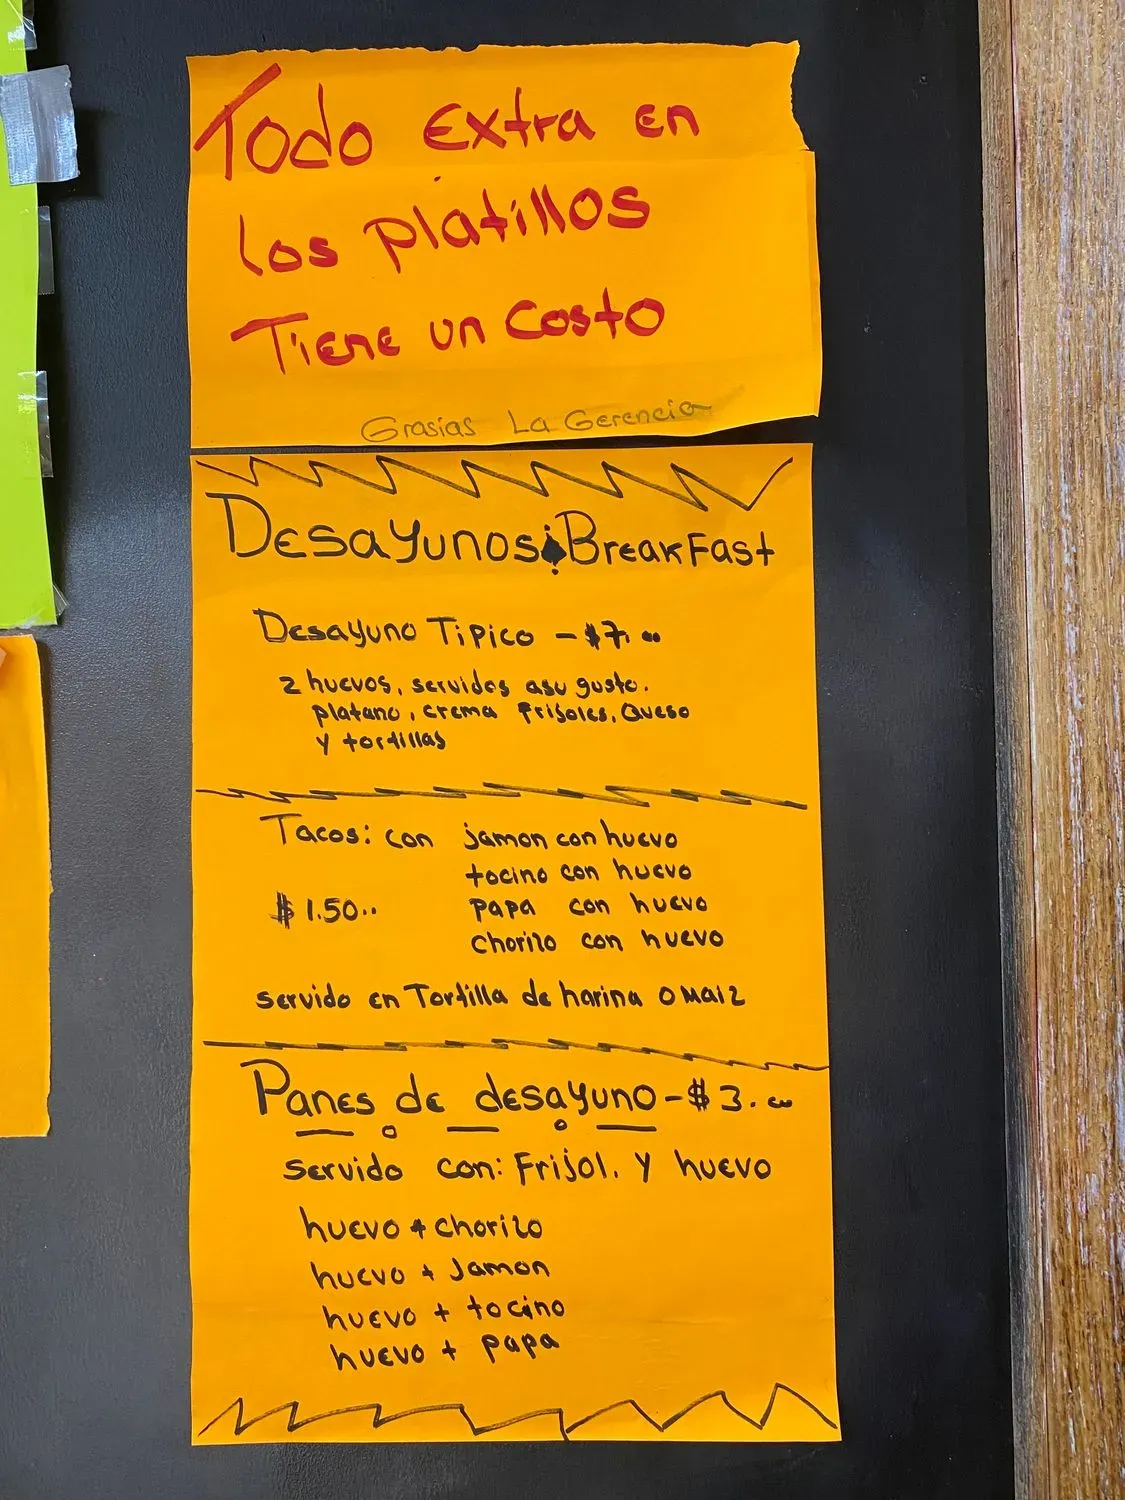 Todo Extra en
los platillos
Tiene un costo
Grasias La Gerencia
Desayunos Breakfast
Desayuno Tipico - $7.00
2 huevos, servidos asu gusto.
platano, crema frijoles, Queso
y tortillas
Tacos: con jamon con huevo
tocino con huevo
$1.50.. papa con huevo
chorizo con huevo
servido en Tortilla de harina o maiz
Panes de desayuno - $3.00
servido con: Frijol. y huevo
huevo + chorizo
huevo + Jamon
huevo + tocino
huevo + papa